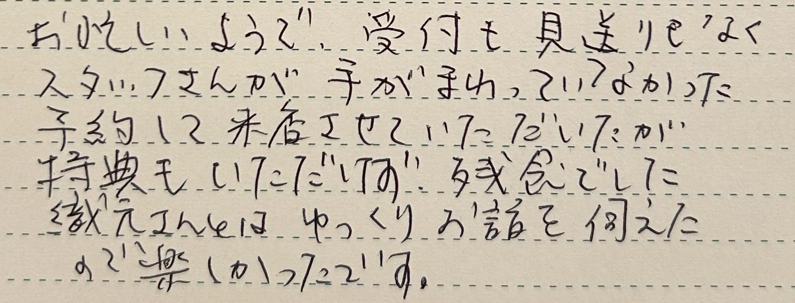 お忙しいようで、受付も見送りもなく
スタッフさんが手がまわっていなかった
予約して来店させていただいたが
特典もいただけず、残念でした
織元さんとはゆっくりお話を伺えた
ので楽しかったです。